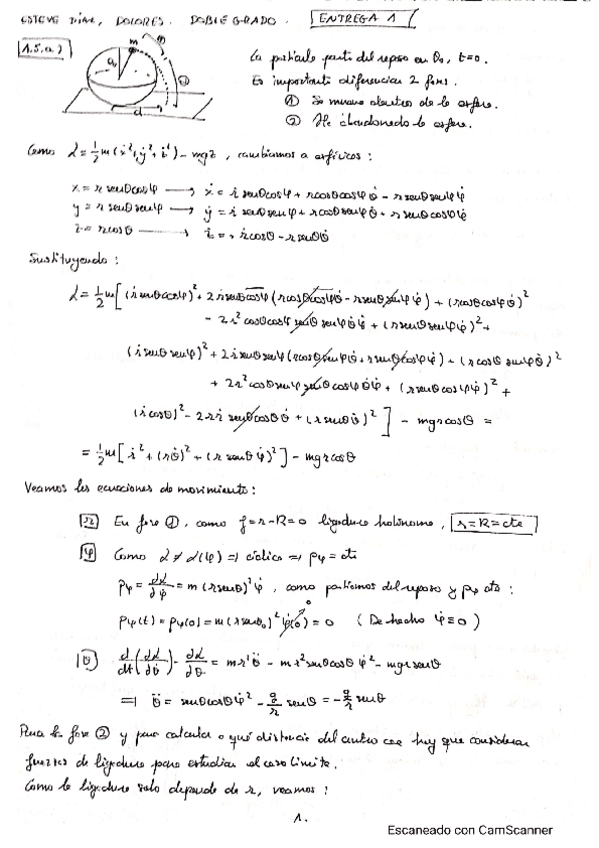 ESTEVE DÍAZ, DOLORES. DOBLE GRADO. ENTREGA 1
1.5.a.)
m ① ②
θ₀
d
La partícula parte del reposo en θ₀, t=0.
Es importante diferenciar 2 fases.
① Se mueve dentro de la esfera.
② Ha abandonado la esfera.
Como L = 1/2 m(ẋ²+ẏ²+ż²) - mgz, cambiamos a esféricas:
x = r senθcosφ → ẋ = ṙ senθcosφ + rcosθcosφ θ̇ - r senθ senφ φ̇
y = r senθ senφ → ẏ = ṙ senθ senφ + r cosθ senφ θ̇ + r senθ cosφ φ̇
z = r cosθ → ż = ṙcosθ - r senθ θ̇
Sustituyendo:
L = 1/2 m[(ṙ senθcosφ)² + 2ṙ senθcosφ (rcosθcosφ θ̇ - r senθ senφ φ̇) + (rcosθcosφ θ̇)²
- 2r² cosθcosφ senθ senφ θ̇ φ̇ + (r senθ senφ φ̇)² +
(ṙ senθ senφ)² + 2ṙ senθ senφ (rcosθ senφ θ̇ + r senθ cosφ φ̇) + (r cosθ senφ θ̇)²
+ 2r² cosθ senφ senθ cosφ θ̇ φ̇ + (r senθ cosφ φ̇)² +
(ṙ cosθ)² - 2r ṙ senθ cosθ θ̇ + (r senθ θ̇)²] - mgr cosθ =
= 1/2 m[ṙ² + (r θ̇)² + (r senθ φ̇)²] - mgr cosθ
Veamos las ecuaciones de movimiento:
r En fase ①, como f = r-R = 0 ligadura holónoma, r = R = cte
φ Como L ≠ L(φ) ⇒ cíclica ⇒ pφ = cte
pφ = ∂L/∂φ̇ = m(r senθ)² φ̇, como partimos del reposo y pφ cte:
pφ(t) = pφ(0) = m(r senθ₀)² φ̇(0) = 0 (De hecho φ̇ ≡ 0)
θ d/dt(∂L/∂θ̇) - ∂L/∂θ = mr² θ̈ - mr² senθ cosθ φ̇² - mgr senθ
⇒ θ̈ = senθ cosθ φ̇² - g/r senθ = - g/r senθ
Para la fase ② y para calcular a qué distancia del centro cae hay que considerar
fuerzas de ligadura para estudiar el caso límite.
Como la ligadura solo depende de r, veamos:
1.
Escaneado con CamScanner